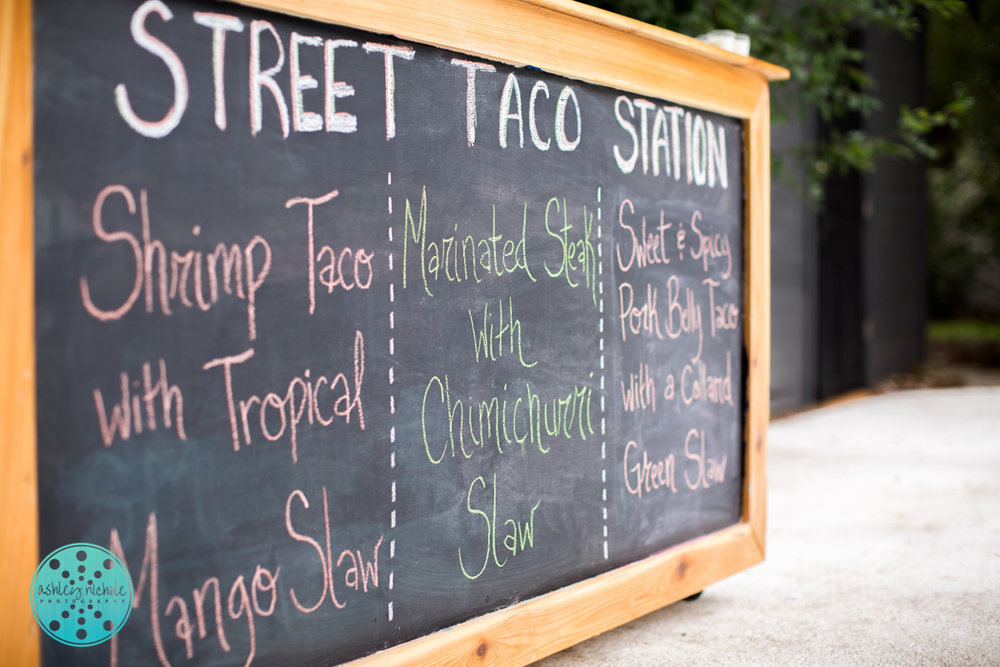 STREET TACO STATION
Shrimp Taco
with Tropical
Mango Slaw
Marinated Steak
with
Chimichurri
Slaw
Sweet & Spicy
Pork Belly Taco
with a Collard
Green Slaw
ashley nichole
PHOTOGRAPHY